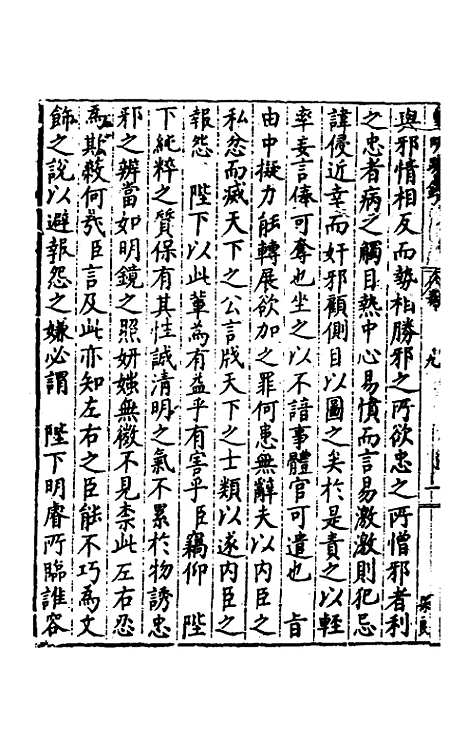 與邪情相反而勢相勝邪之所欲忠之所憎邪者利
之忠者病之觸目熱中心易憤而言易激激則犯忌
諱侵近幸而奸邪顧側目以圖之矣於是責之以輕
率妄言俸可奪也坐之以不諳事體官可遣也　旨
由中擬力能轉展欲加之罪何患無辭夫以內臣之
私忿而威天下之公言戕天下之士類以遂內臣之
報怨　陛下以此輩為有益乎有害乎臣竊仰　陛
下純粹之質保有其性誠清明之氣不累於物誘忠
邪之辨當如明鏡之照妍媸無微不見柰此左右忍
為欺蔽何哉臣言及此亦知左右之臣能不巧為文
餙之說以避報怨之嫌必謂　陛下明睿所臨誰容